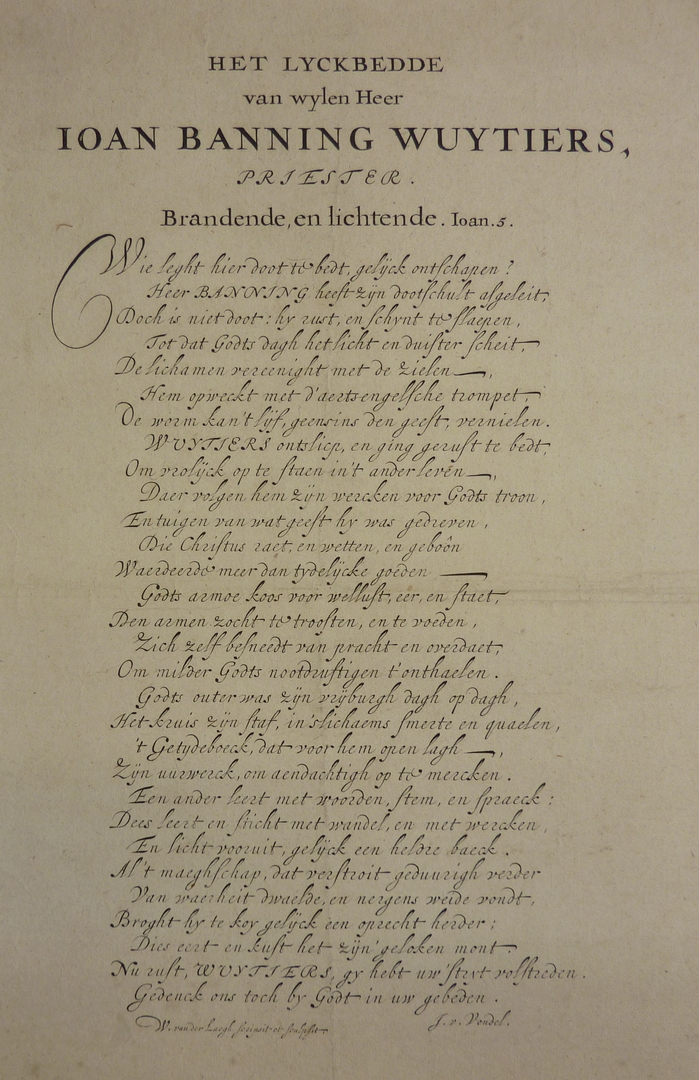 HET LYCKBEDDE
van wylen Heer
IOAN BANNING WUYTIERS,
PRIESTER.
Brandende, en lichtende. Ioan. 5.
Wie leght hier doot te bedt, gelijck ontschapen?
Heer BANNING heeft zijn dootschult afgeleit,
Doch is niet doot: hy rust, en schynt te slaepen,
Tot dat Godts dagh het licht en duister scheit,
De lichamen vereenight met de zielen,
Hem opweckt met d'aertsengelsche trompet,
De worm kan't lijf, geensins den geest, vernielen.
WUYTIERS ontsliep, en ging gerust te bedt,
Om vrolijck op te staen in't ander leven,
Daer volgen hem zijn wercken voor Godts troon,
En tuigen van wat geest hy was gedreven,
Die Christus raet, en wetten, en geboôn
Waerdeerde meer dan tydelijcke goeden
Godts armoe koos voor wellust, eer, en staet,
Den armen zocht te troosten, en te voeden,
Zich zelf besneedt van pracht en overdaet,
Om milder Godts nootdruftigen t'onthaelen.
Godts outer was zijn vrijburgh dagh op dagh,
Het kruis zijn staf, in 'slichaems smerte en quaelen,
't Getydeboeck, dat voor hem open lagh,
Zijn uurwerck, om aendachtigh op te mercken.
Een ander leert met woorden, stem, en spraeck:
Dees leert en sticht met wandel, en met wercken,
En licht vooruit, gelijck een heldre baeck.
Al 't maeghschap, dat verstroit geduurigh verder
Van waerheit dwaelde, en nergens weide vondt,
Broght hy te koy gelijck een oprecht herder;
Dies eert en kust het zijn' geloken mont.
Nu rust, WUYTIERS, gy hebt uw' stryt volstreden.
Gedenck ons toch by Godt in uw gebeden.
J. v. Vondel.
W. vander Laegh scripsit et sculpsit.